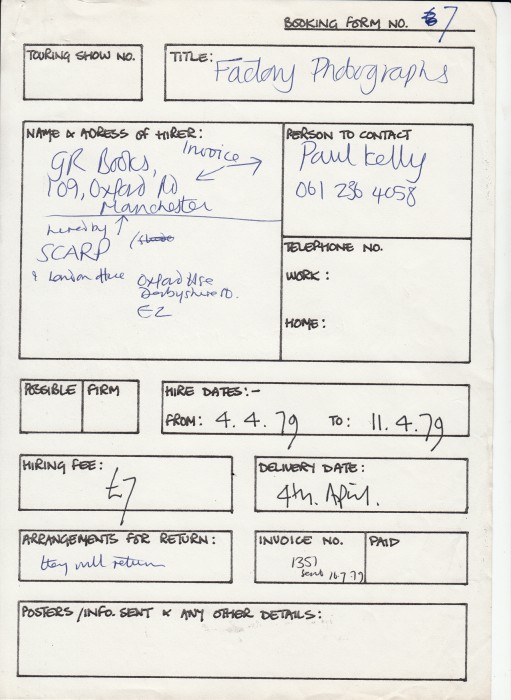 BOOKING FORM NO. 7
TOURING SHOW NO.
TITLE: Factory Photographs
NAME & ADRESS OF HIRER:
GR Books, Invoice
109, Oxford Rd
Manchester
hired by
SCARP
& London
Oxford Hse
Derbyshire
E2
PERSON TO CONTACT
Paul Kelly
061 236 4058
TELEPHONE NO.
WORK:
HOME:
POSSIBLE FIRM
HIRE DATES:-
FROM: 4.4.79 TO: 11.4.79
HIRING FEE:
£7
DELIVERY DATE:
4th. April.
ARRANGEMENTS FOR RETURN:
they will return
INVOICE NO. PAID
1351
sent 16.7.79
POSTERS/INFO. SENT & ANY OTHER DETAILS: